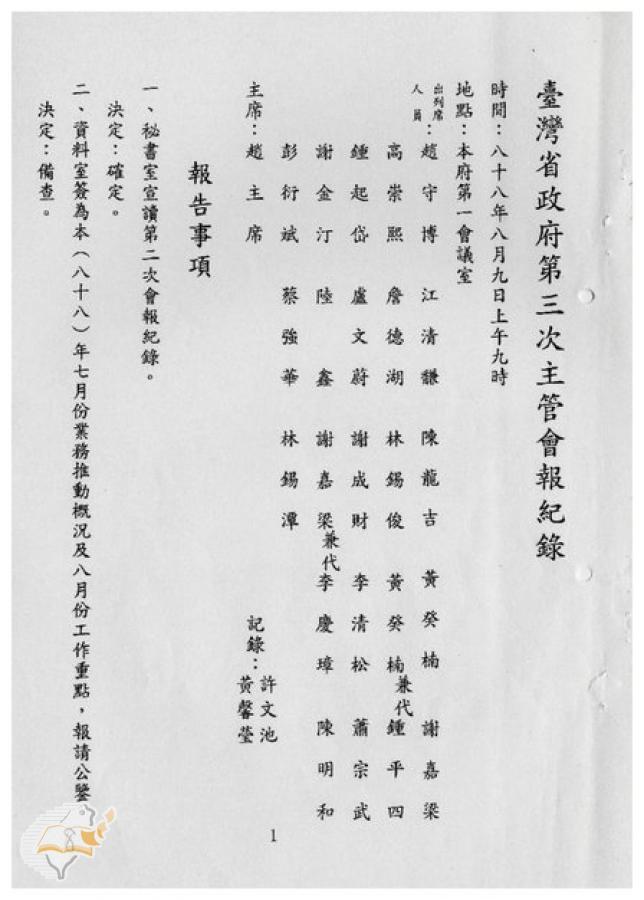 臺灣省政府第三次主管會報紀錄
時間：八十八年八月九日上午九時
地點：本府第一會議室
出列席人員：趙守博 江清馦 陳龍吉 黃癸楠 謝嘉梁
高崇熙 詹德湖 林錫俊 黃癸楠兼代 鍾平四
鍾起岱 盧文蔚 謝成財 李清松 蕭宗武
謝金汀 陸鑫 謝嘉梁兼代 李慶璋 陳明和
彭衍斌 蔡強華 林錫潭
主席：趙主席 記錄：許文池 黃馨瑩
報告事項
一、秘書室宣讀第二次會報紀錄。
決定：確定。
二、資料室簽為本（八十八）年七月份業務推動概況及八月份工作重點，報請公鑒
決定：備查。
1